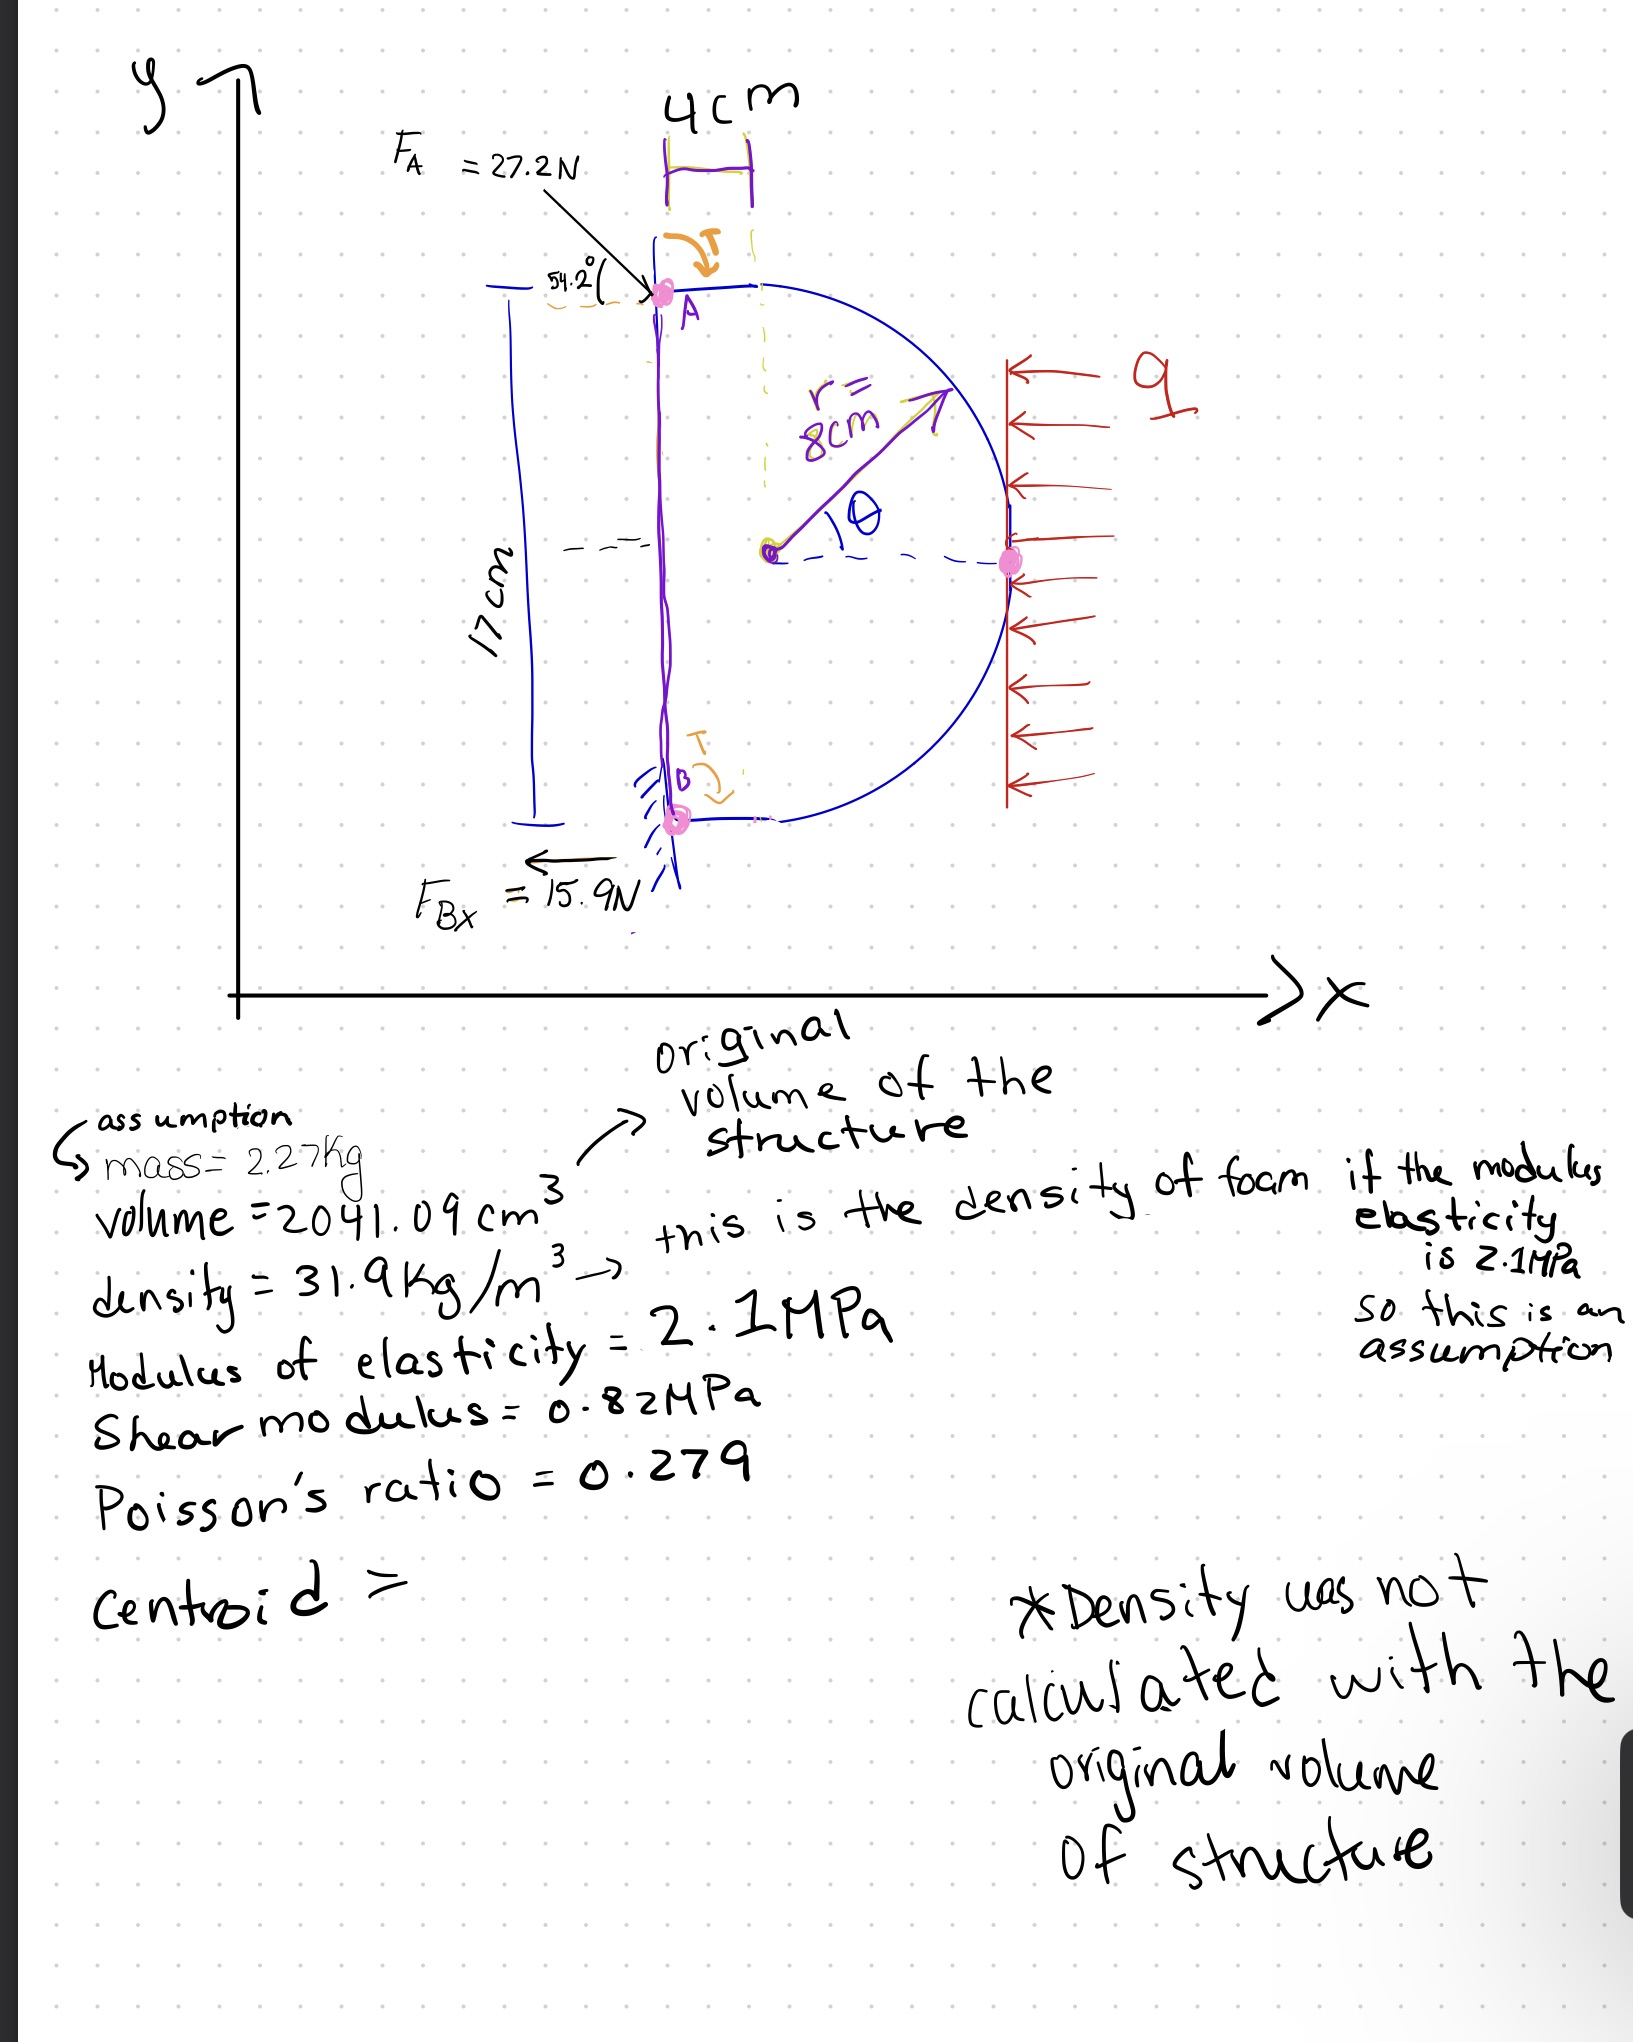 y
4cm
F_A = 27.2N
T
54.2°
A
q
r =
8cm
θ
17cm
T
B
F_Bx = 15.9N
x
original
volume of the
structure
assumption
mass = 2.27Kg
volume = 2041.09 cm³
this is the density of foam if the modulus
elasticity
is 2.1MPa
so this is an
assumption
density = 31.9Kg/m³ →
Modulus of elasticity = 2.1MPa
Shear modulus = 0.82MPa
Poisson's ratio = 0.279
Centroid =
*Density was not
calculated with the
original volume
of structure